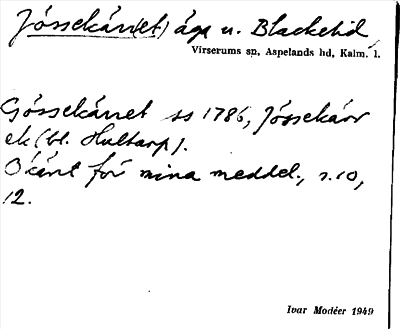 Jössekärr(et) äga u. Blackehid
Virserums sn, Aspelands hd, Kalm. l.
Gössekärret ss 1786, Jössekärr
ek (bl. Hultarp).
Okänt för mina meddel., s. 10,
12.
Ivar Modéer 1949